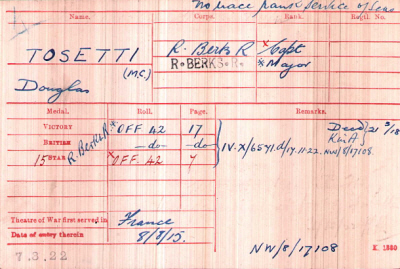 No trace rank service of Seas
Name. Corps. Rank. Regtl. No.
TOSETTI R. Berks R × Capt
(M.C.) R·BERKS·R· * Major
Douglas
Medal. Roll. Page. Remarks.
VICTORY R. Berks R * OFF. 42 17 Dead 21/3/18
BRITISH —do— —do— IV.X/6541.d/17.11.22. NW/8/17108.
15 STAR × OFF. 42 7
Theatre of War first served in France
Date of entry therein 8/8/15.
7.3.22 NW/8/17108 K. 1380